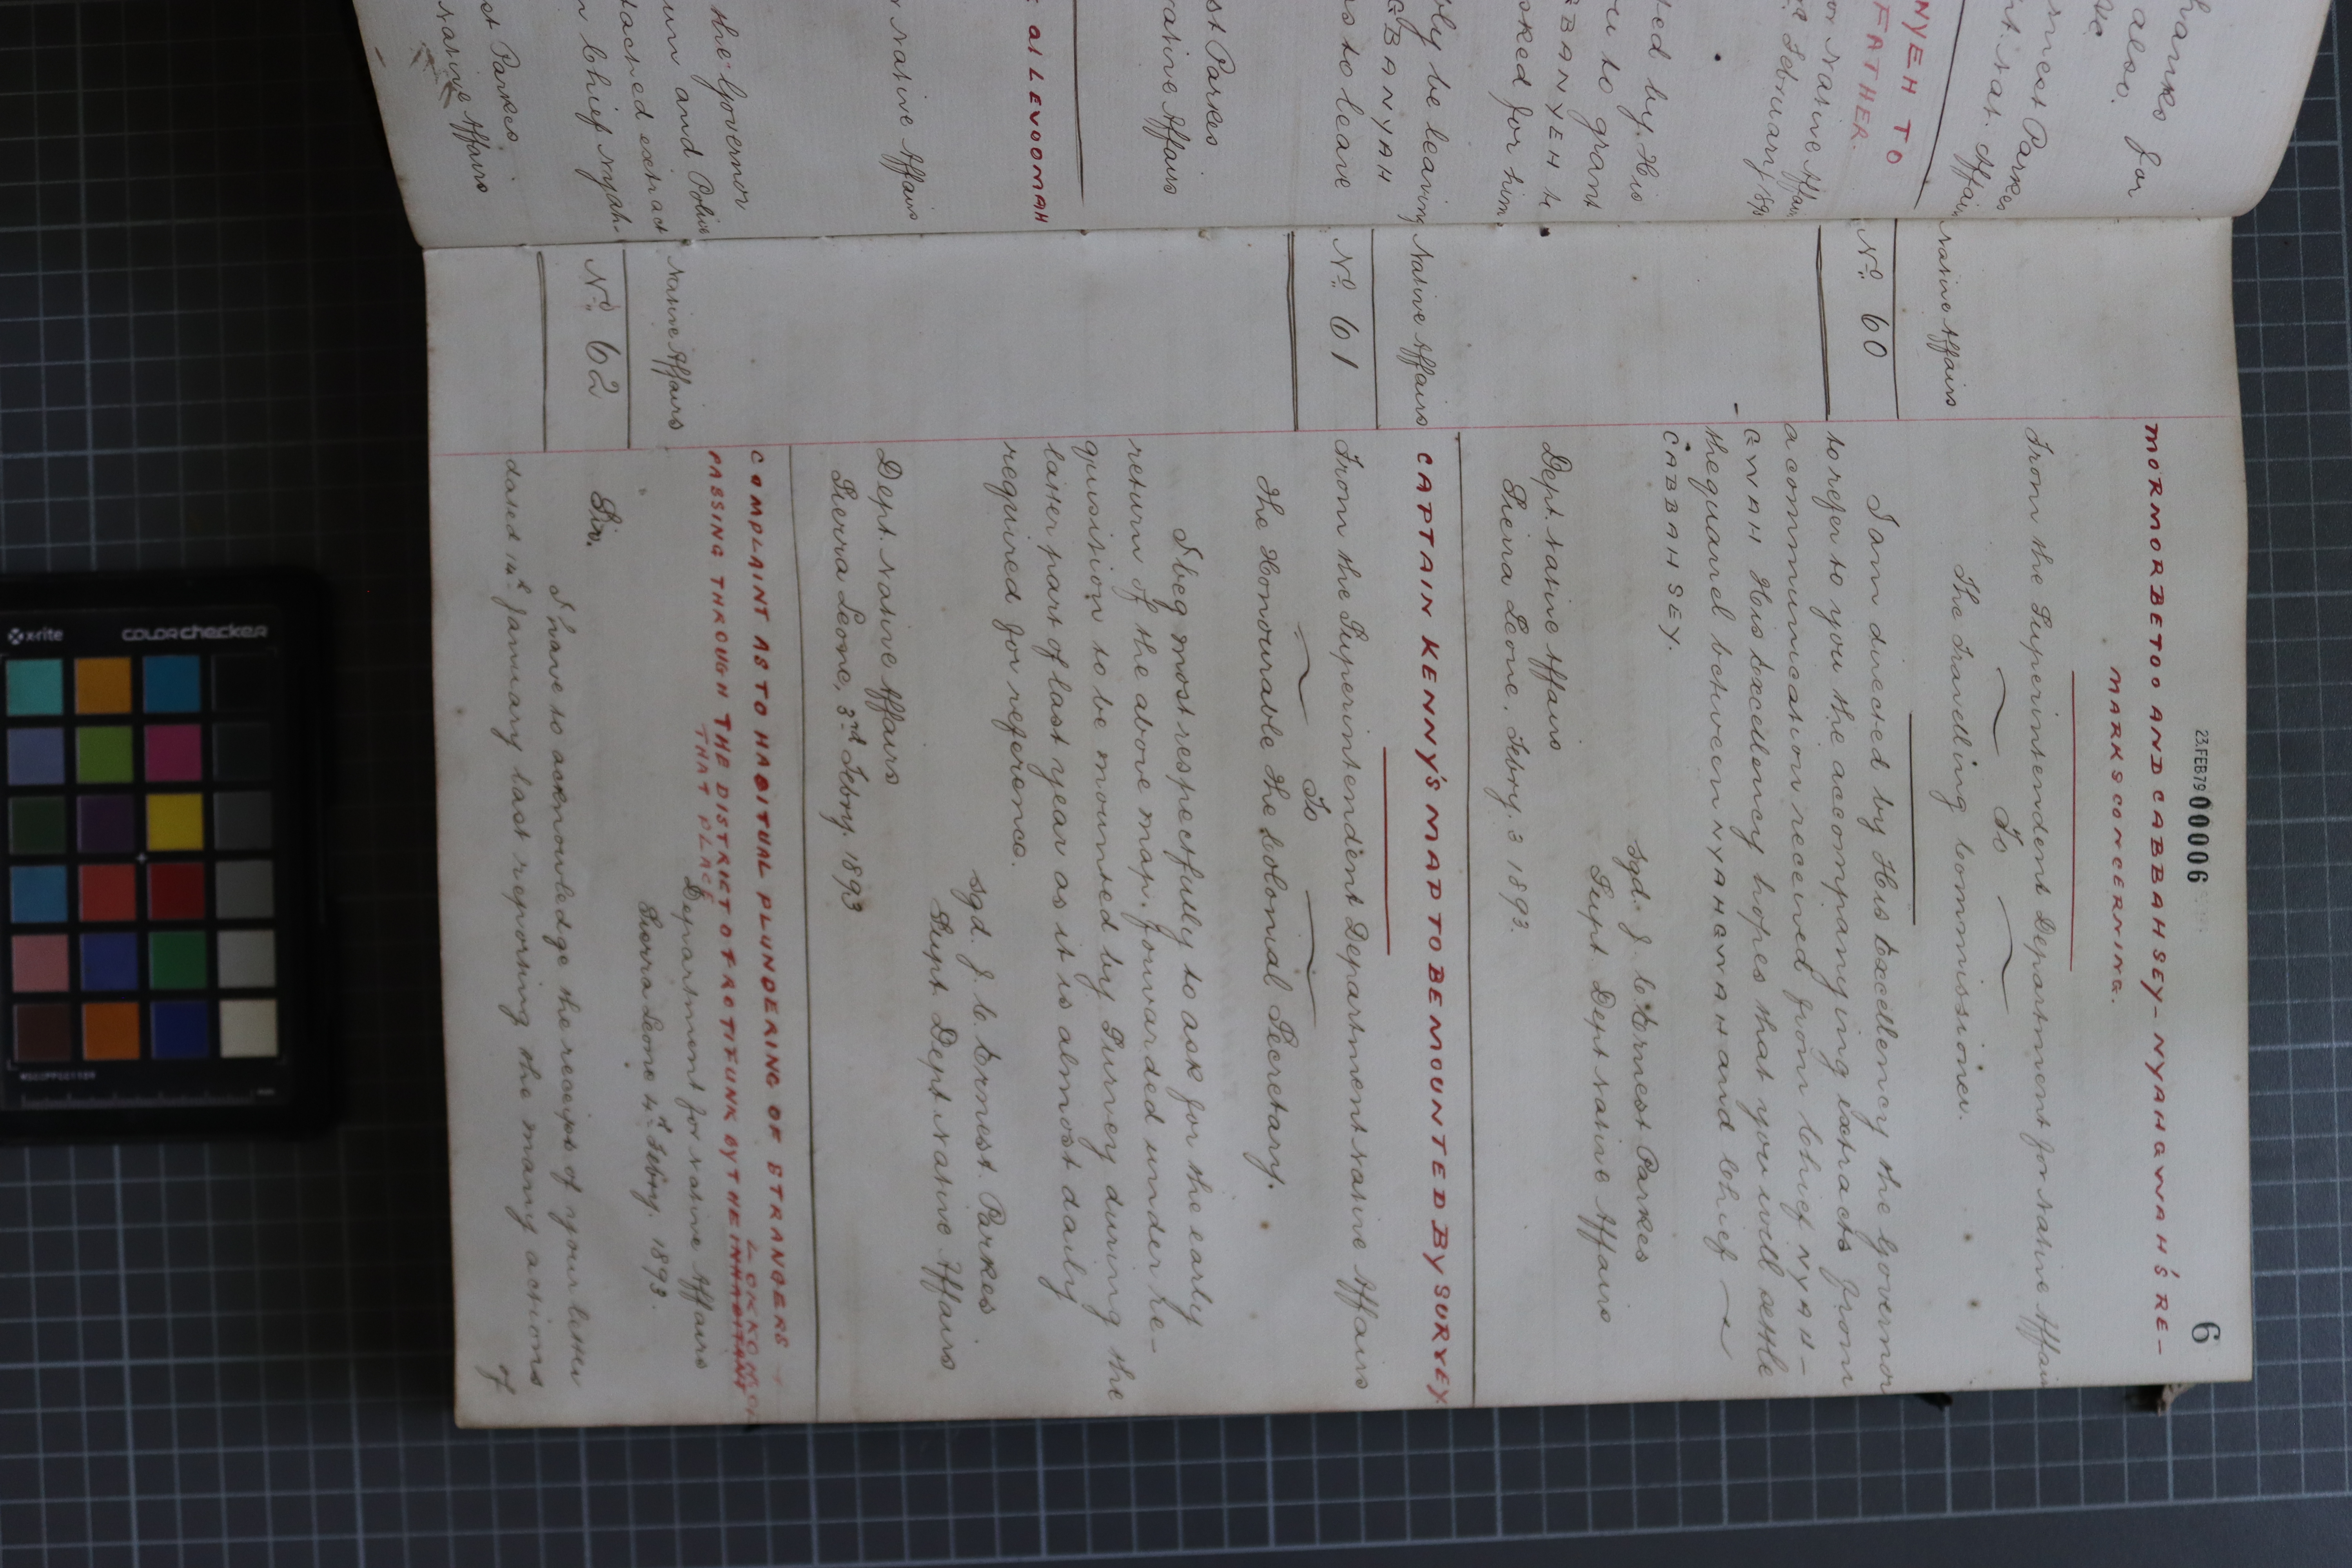 23.FEB79 00006
6
MORMORBETOO AND CABBAHSEY - NYAHGWAH'S RE-
MARKS CONCERNING.
Native Affairs
No. 60
From the Superintendent Department for Native Affairs
To
The Travelling Commissioner.
I am directed by His Excellency the Governor
to refer to you the accompanying extracts from
a communication received from Chief NYAH-
GWAH His Excellency hopes that you will settle
the quarrel between NYAHGWAH and Chief
CABBAHSEY.
sgd. J. C. Ernest Parkes
Supt. Dept Native Affairs
Dept. Native Affairs
Sierra Leone, Febry. 3 1893.
CAPTAIN KENNY'S MAP TO BE MOUNTED BY SURVEY
Native Affairs
No. 61
From the Superintendent Department Native Affairs
To
The Honourable the Colonial Secretary.
I beg most respectfully to ask for the early
return of the above map, forwarded under re-
quisition to be mounted by Survey during the
latter part of last year as it is almost daily
required for reference.
sgd. J. C. Ernest Parkes
Supt. Dept Native Affairs
Dept. Native Affairs
Sierra Leone, 3rd Febry. 1893
COMPLAINT AS TO HABITUAL PLUNDERING OF STRANGERS
PASSING THROUGH THE DISTRICT OF ROTIFUNK BY THE INHABITANTS
THAT PLACE
Native Affairs
No. 62
Department for Native Affairs
Sierra Leone 4th Febry. 1893.
Sir,
I have to acknowledge the receipt of your letter
dated 14th January last reporting the many actions
of
hanks for
also.
rnest Parkes
nt Nat. Affairs
NYEH TO
FATHER.
or Native Affairs
February
ted by His
u to grant
GBANYEH
sked for him
bly be leaving
GBANYAH
as to leave
st Parkes
Native Affairs
al LEVOOMAH
Native Affairs
the Governor
um and Police
tached extract
Chief Nyah-
st Parkes
Native Affairs
x-rite
colorchecker